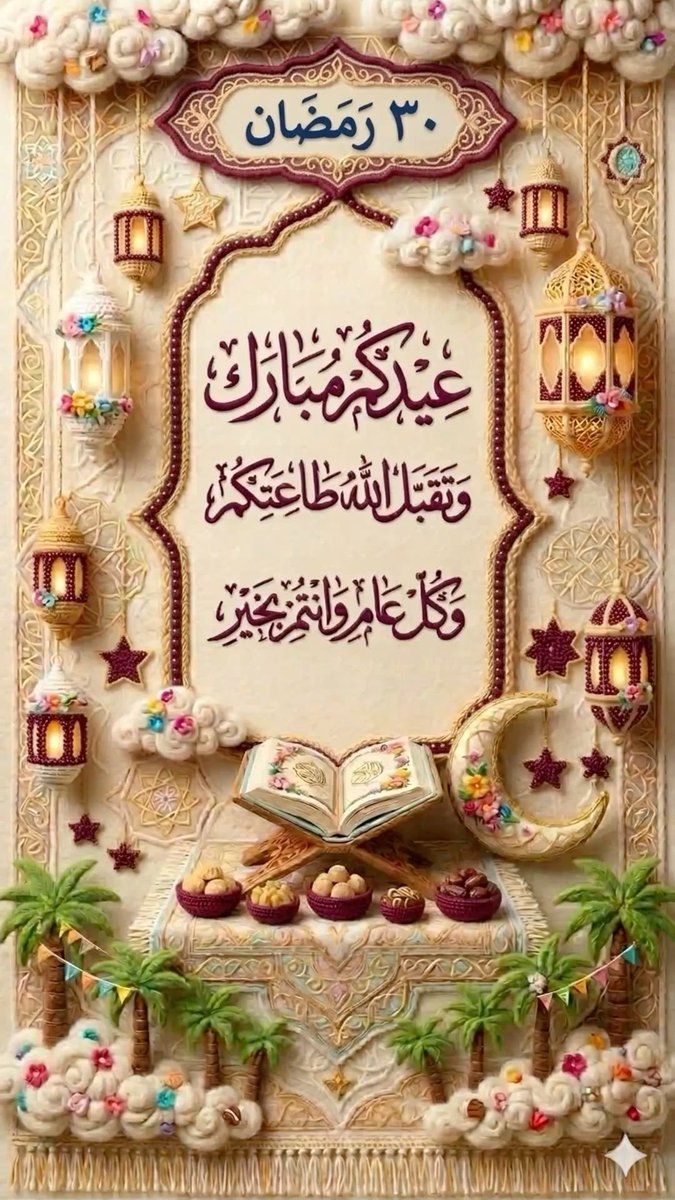 ٣٠ رَمَضَان
عِيْدُكُمْ مُبَارَك
وَتَقَبَّلَ اللهُ طَاعَتِكُمْ
وَكُلّ عَامِ وَانْتُمْ بِخَيْرِ